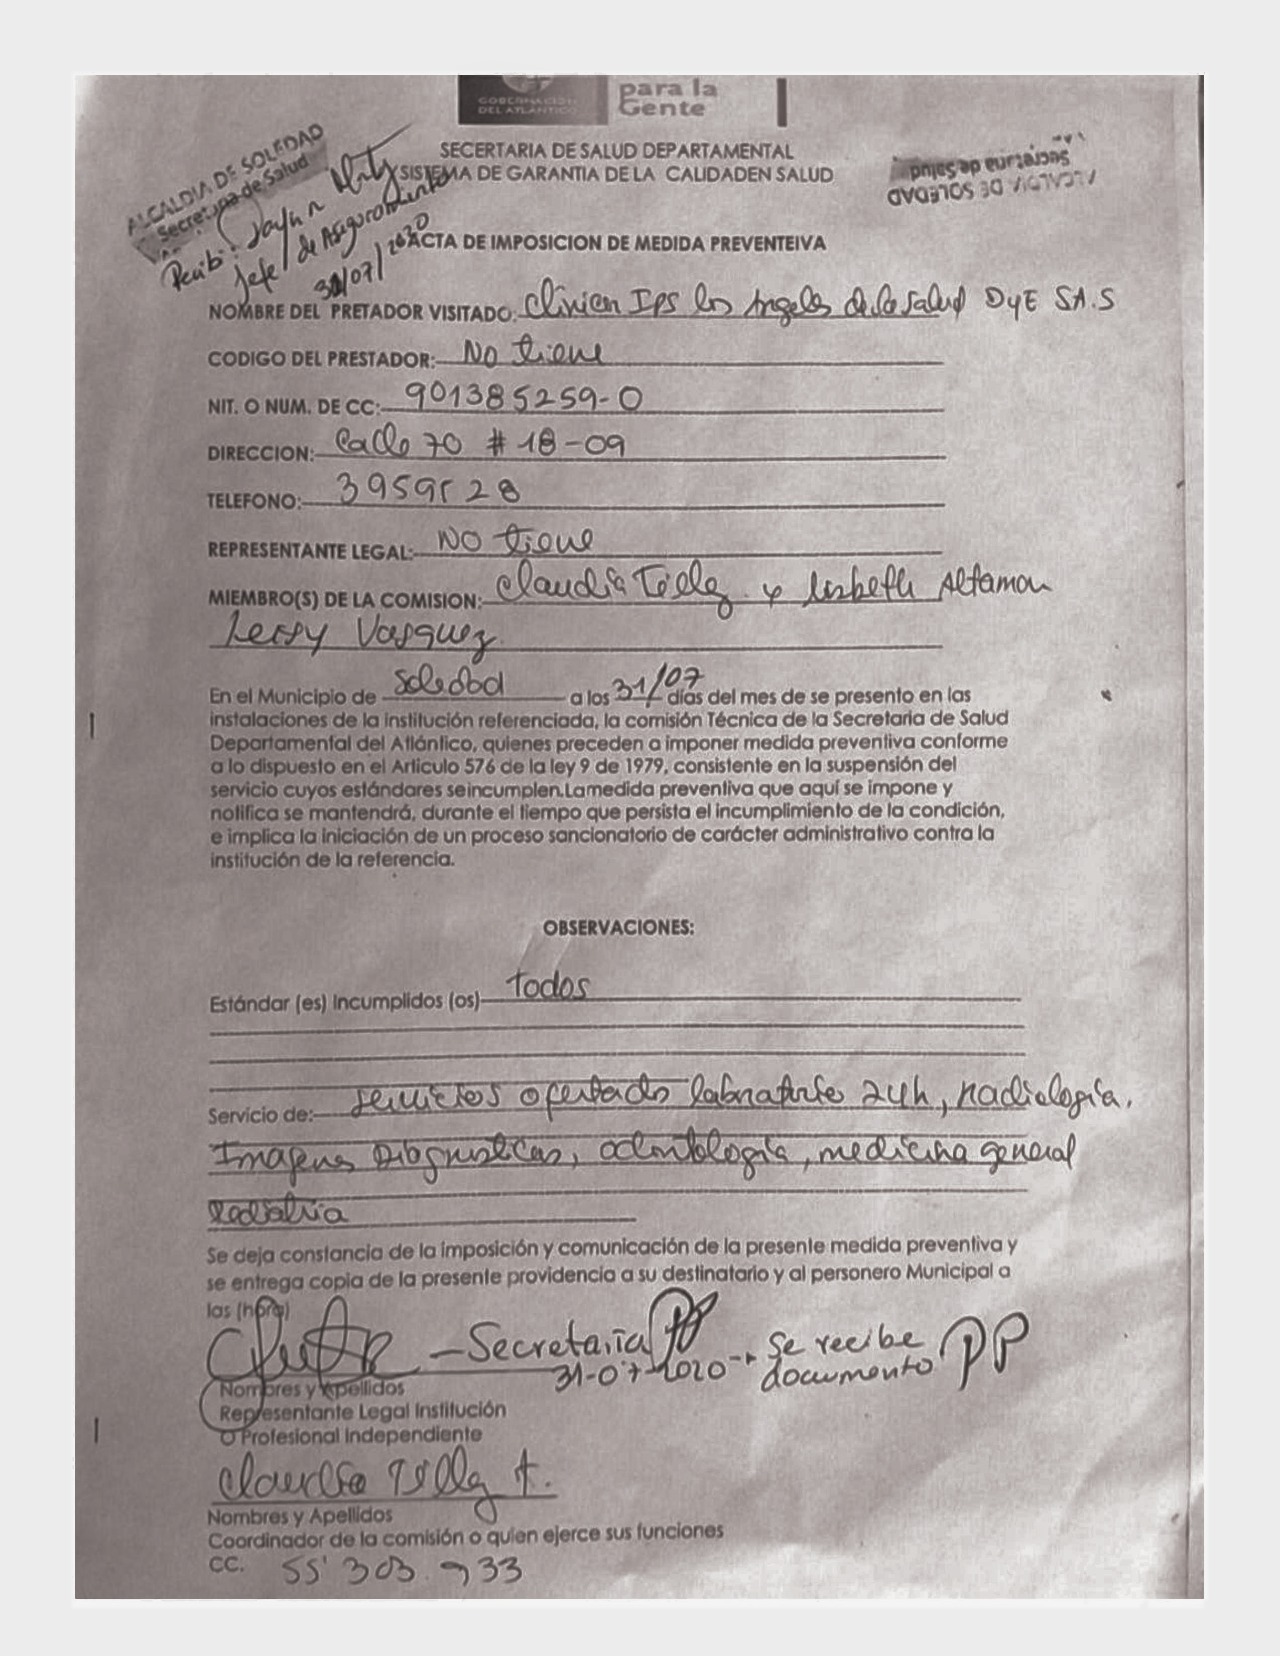 GOBERNACION
DEL ATLANTICO
para la
Gente
ALCALDIA DE SOLEDAD
Secretaria de Salud
Recibi:
Jefe de Aseguramiento
31/07/2020
Secretaria de Salud
ALCALDIA DE SOLEDAD
SECERTARIA DE SALUD DEPARTAMENTAL
SISTEMA DE GARANTIA DE LA CALIDADEN SALUD
ACTA DE IMPOSICION DE MEDIDA PREVENTEIVA
NOMBRE DEL PRETADOR VISITADO: Clinica IPS los Angeles de la Salud DyE SA.S
CODIGO DEL PRESTADOR: No tiene
NIT. O NUM. DE CC: 901385259-0
DIRECCION: Calle 70 # 18-09
TELEFONO: 3959528
REPRESENTANTE LEGAL: NO tiene
MIEMBRO(S) DE LA COMISION: Claudia Tellez y Lisbeth Altamar
Leisy Vasquez
En el Municipio de Soledad a los 31/07 días del mes de se presento en las
instalaciones de la institución referenciada, la comisión Técnica de la Secretaria de Salud
Departamental del Atlántico, quienes preceden a imponer medida preventiva conforme
a lo dispuesto en el Articulo 576 de la ley 9 de 1979, consistente en la suspensión del
servicio cuyos estándares seincumplen.Lamedida preventiva que aquí se impone y
notifica se mantendrá, durante el tiempo que persista el incumplimiento de la condición,
e implica la iniciación de un proceso sancionatorio de carácter administrativo contra la
institución de la referencia.
OBSERVACIONES:
Estándar (es) Incumplidos (os) todos
Servicio de: servicios ofertados laboratorio 24h, radiología.
Imagenes Diagnosticas, odontología, medicina general
Pediatria
Se deja constancia de la imposición y comunicación de la presente medida preventiva y
se entrega copia de la presente providencia a su destinatario y al personero Municipal a
las (hora)
- Secretaria PP
31-07-2020 -> Se recibe documento PP
Nombres y Apellidos
Representante Legal Institución
O Profesional Independiente
Claudia Tellez A.
Nombres y Apellidos
Coordinador de la comisión o quien ejerce sus funciones
CC. 55'303.933